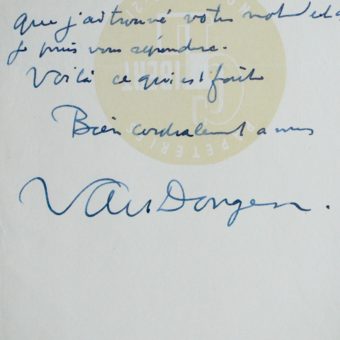 que j'ai trouvé votre mot
je puis vous répondre.
Voilà ce qui est fait
Bien cordialement a vous
Van Dongen.